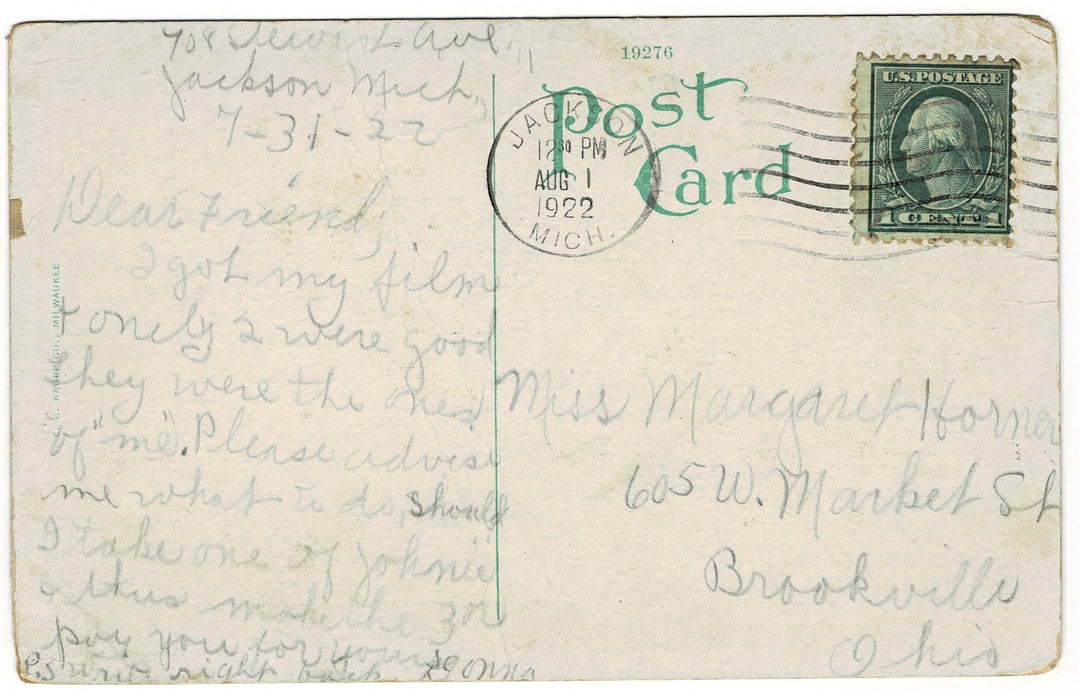 708 Stewart Ave.,
Jackson Mich,
7-31-22
Dear Friend,
I got my film
+ onely 2 were good
they were the ones
of "me". Please advise
me what to do, should
I take one of Johnie
+ thus make the 3 or
pay you for yours
P.S write right back. Leonna
E. C. KROPP CO., MILWAUKEE
19276
Post
Card
JACKSON
12 30 PM
AUG 1
1922
MICH.
U.S. POSTAGE
1 CENT 1
Miss Margaret Horner
605 W. Market St
Brookville
Ohio